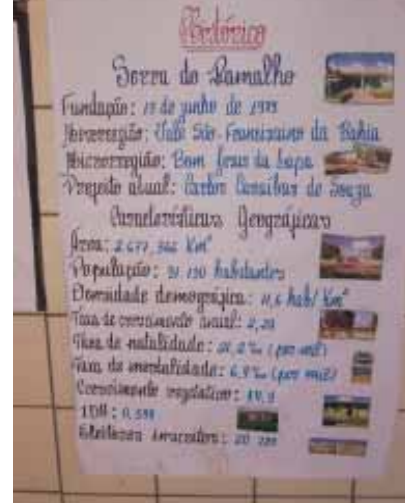 Histórico
Serra do Ramalho
Fundação: 13 de junho de 1989
Mesorregião: Vale São-Franciscano da Bahia
Microrregião: Bom Jesus da Lapa
Prefeito atual: Carlos Caraíbas de Souza
Características Geográficas
Área: 2.677,366 Km²
População: habitantes
Densidade demográfica: 11,6 hab/Km²
Taxa de crescimento anual:
Taxa de natalidade: (por mil)
Taxa de mortalidade: 6,9‰ (por mil)
Crescimento vegetativo:
IDH: 0,595
Eleitores